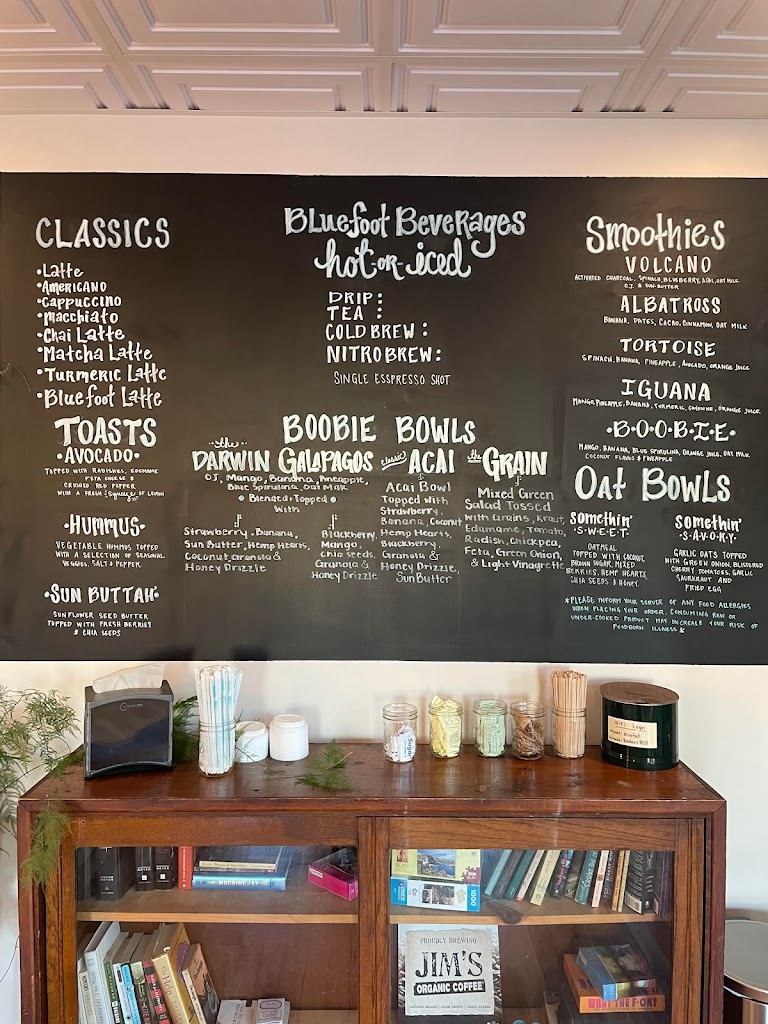 CLASSICS
•Latte
•AMERICANO
•CAPPUCCINO
•macchiato
•Chai Latte
•Matcha Latte
•Turmeric Latte
•Bluefoot Latte
TOASTS
•AVOCADO•
TOPPED WITH RADISHES, EDEMAME
FETA CHEESE &
CRUSHED RED PEPPER
WITH A FRESH Squeeze OF LEMON
•HUMMUS•
VEGETABLE HUMMUS TOPPED
WITH A SELECTION OF SEASONAL
VEGGIES, SALT & PEPPER
•SUN BUTTAH•
SUNFLOWER SEED BUTTER
TOPPED WITH FRESH BERRIES
& CHIA SEEDS
Bluefoot Beverages
hot-or-iced
DRIP:
TEA :
COLD BREW :
NITRO BREW:
SINGLE ESSPRESSO SHOT
BOOBIE BOWLS
the
DARWIN GALAPAGOS
OJ, Mango, Banana, Pineapple,
Blue Spirulina, Oat Milk
•Blended+Topped•
With
Strawberry, Banana,
Sun Butter, Hemp Hearts,
Coconut Granola &
Honey Drizzle
Blackberry,
Mango,
Chia Seeds,
Granola &
Honey Drizzle
classic ACAI
Acai Bowl
Topped with
Strawberry,
Banana, Coconut
Hemp Hearts,
Blackberry
Granola &
Honey Drizzle,
Sun Butter
the GRAIN
Mixed Green
Salad Tossed
with Grains, Kraut,
Edamame, Tomato,
Radish, Chickpea,
Feta, Green Onion,
& Light Vinagrette
Smoothies
VOLCANO
ACTIVATED CHARCOAL, SPINACH, BLUEBERRY, ACAI, OAT MILK
O.J. & SUN BUTTER
ALBATROSS
BANANA, DATES, CACAO, CINNAMON, OAT MILK
TORTOISE
SPINACH, BANANA, PINEAPPLE, AVOCADO, ORANGE JUICE
IGUANA
MANGO, PINEAPPLE, BANANA, TURMERIC, ORANGE JUICE
•B•O•O•B•I•E•
MANGO, BANANA, BLUE SPIRULINA, ORANGE JUICE, OAT MILK
COCONUT FLAKES & PINEAPPLE
Oat BOWLS
Somethin'
•S•W•E•E•T•
OATMEAL
TOPPED WITH COCONUT,
BROWN SUGAR, MIXED
BERRIES, HEMP HEARTS,
CHIA SEEDS & HONEY
Somethin'
•S•A•V•O•R•Y•
GARLIC OATS TOPPED
WITH GREEN ONION, BLISTERED
CHERRY TOMATOES, GARLIC
SAURKRAUT AND
FRIED EGG
*PLEASE INFORM YOUR SERVER OF ANY FOOD ALLERGIES
WHEN PLACING YOUR ORDER. CONSUMING RAW OR
UNDER-COOKED PRODUCT MAY INCREASE YOUR RISK OF
FOODBORN ILLNESS*
Sugar
MOCKINGJAY
1000
PROUDLY BREWING
JIM'S
ORGANIC COFFEE
WHAT THE F*@K?